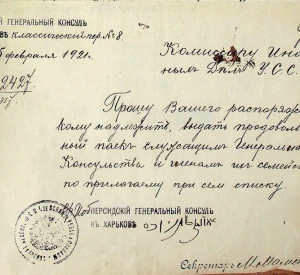 ІЙ ГЕНЕРАЛЬНЫЙ КОНСУЛЪ
ВѢ Классический пер № 8.
5 февраля 1921.
2427
Комиссару Ино
нымъ Дѣламъ У.С.С.
Прошу Вашего распоряж
кому надлежитъ, выдать продоволь
ный паекъ служащимъ Генераль
Консульства и членамъ ихъ семейс
по прилагаему при семъ списку.
ПЕРСИДСКІЙ ГЕНЕРАЛЬНЫЙ КОНСУЛЪ
ВЪ ХАРЬКОВѢ
Секретарь